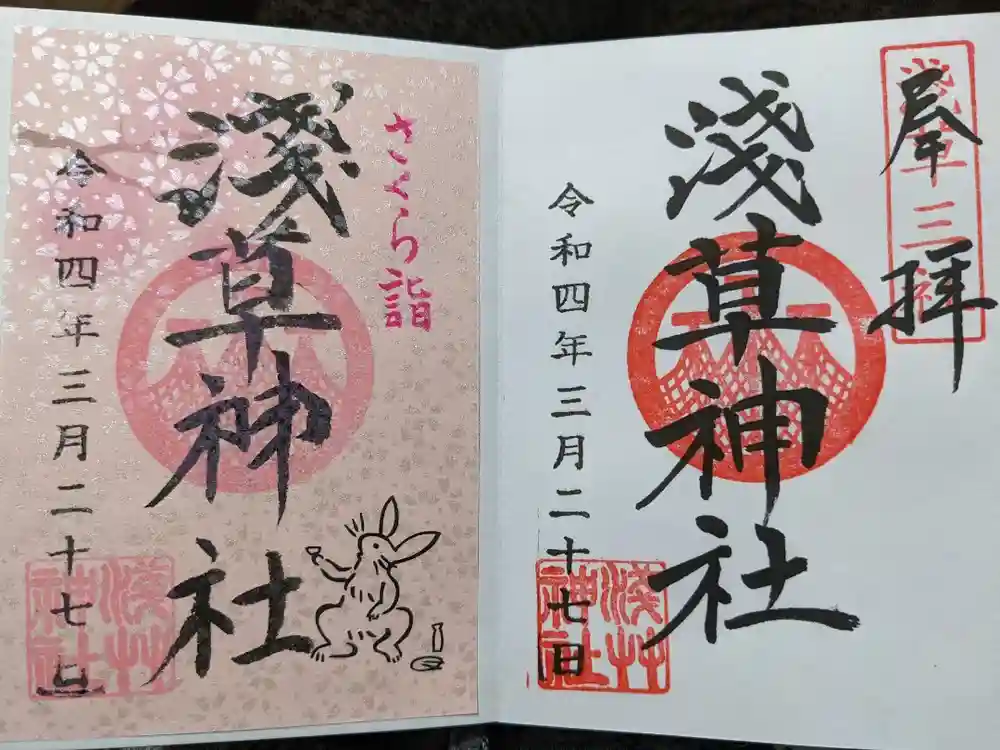 さくら詣
淺草神社
令和四年三月二十七日
淺草神社
奉拝
淺草三社
淺草神社
令和四年三月二十七日
淺草神社